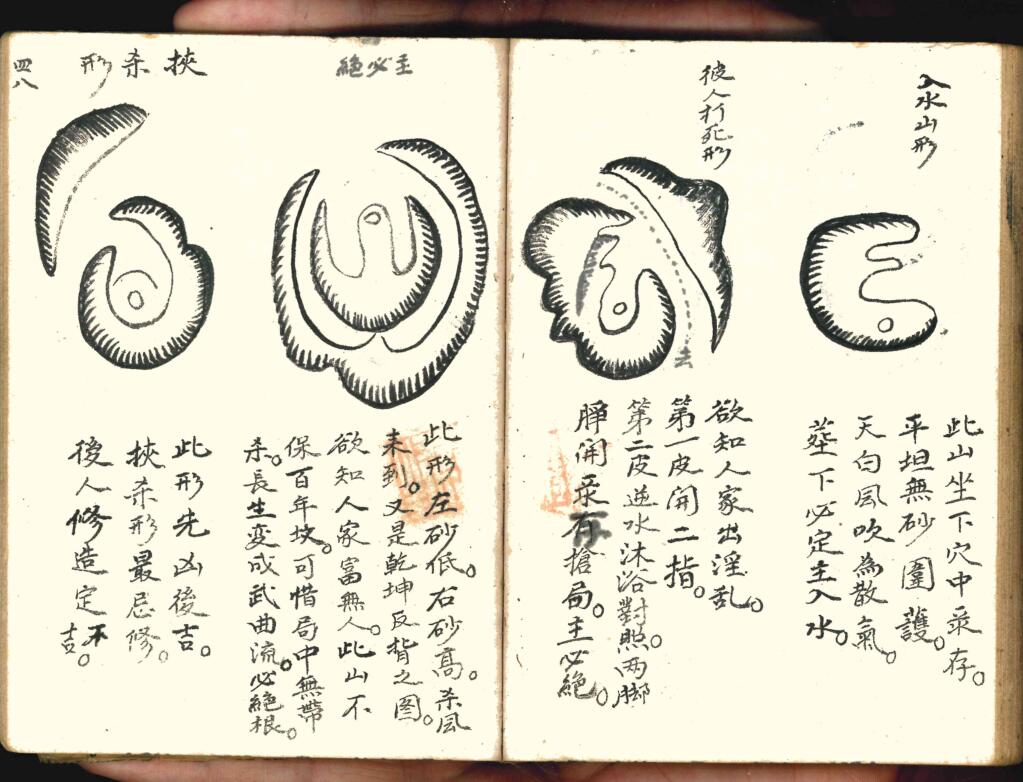 入水山形
此山坐下穴中采存。
平坦無砂圍護。
天白風吹為散氣。
葬下必定主入水。
彼人打死形
去
欲知人家出淫乱。
第一皮開二指。
第二皮逆水沐浴對照。两脚
脝開采存搶局。主必絕。
主必絕
此形左砂低。石砂高。杀風
未到。又是乾坤反揹之图。
欲知人家富無人。此山不
保百年坟。可惜局中無帶
杀。長生変成武曲流。必絕根。
挾杀形
此形先凶後吉。
挾杀形最忌修。
後人修造定不吉。
四八